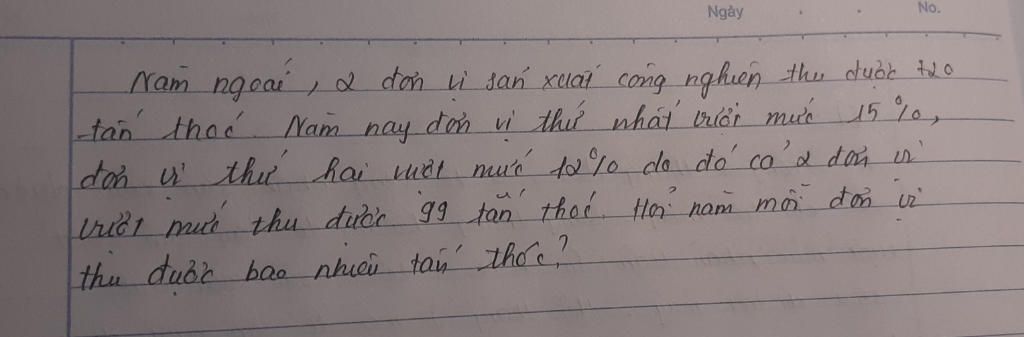 Ngày
No.
Năm ngoái, 2 đơn vị sản xuất công nghiệp thu được 720
tấn thóc. Năm nay đơn vị thứ nhất vượt mức 15%,
đơn vị thứ hai vượt mức 12% do đó cả 2 đơn vị
vượt mức thu được 99 tấn thóc. Hỏi năm mỗi đơn vị
thu được bao nhiêu tấn thóc?